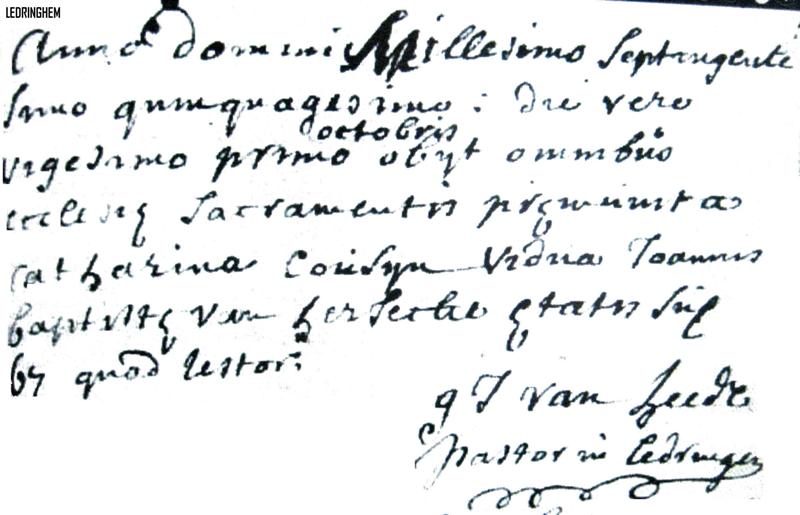 LEDRINGHEM
Anno domini Millesimo Septingente
simo quinquagesimo : die vero
octobris
vigesimo primo obijt omnibus
ecclesię Sacramentis pręmunita
catharina Cousyn vidua Joannis
baptistę van herseche ętatis suę
67 quod testor :
g J van heede
pastor in ledringem